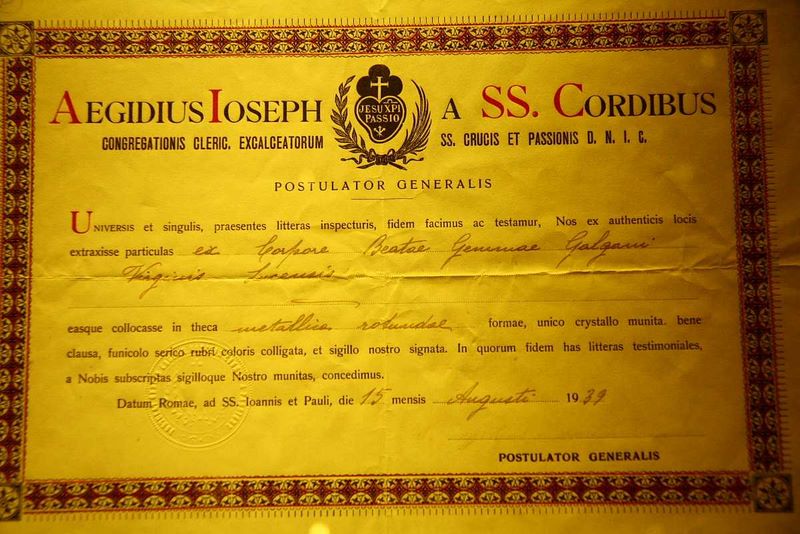 AEGIDIUS IOSEPH A SS. CORDIBUS
JESU XPI
PASSIO
CONGREGATIONIS CLERIC. EXCALCEATORUM SS. CRUCIS ET PASSIONIS D. N. I. C.
POSTULATOR GENERALIS
UNIVERSIS et singulis, praesentes litteras inspecturis, fidem facimus ac testamur, Nos ex authenticis locis
extraxisse particulas ex Corpore Beatae Gemmae Galgani
Virginis Lucensis
easque collocasse in theca metallica rotundae formae, unico crystallo munita, bene
clausa, funicolo serico rubri coloris colligata, et sigillo nostro signata. In quorum fidem has litteras testimoniales,
a Nobis subscriptas sigilloque Nostro munitas, concedimus.
Datum Romae, ad SS. Ioannis et Pauli, die 15 mensis Augusti 1939
POSTULATOR GENERALIS